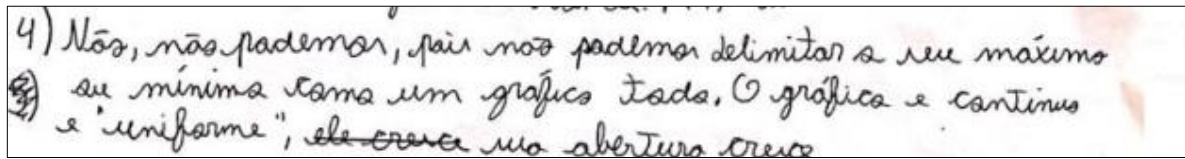 4) Não, não podemos, pois não podemos delimitar o seu máximo
ou mínimo como um gráfico todo. O gráfico e continuo
e "uniforme", ele cresce sua abertura cresce